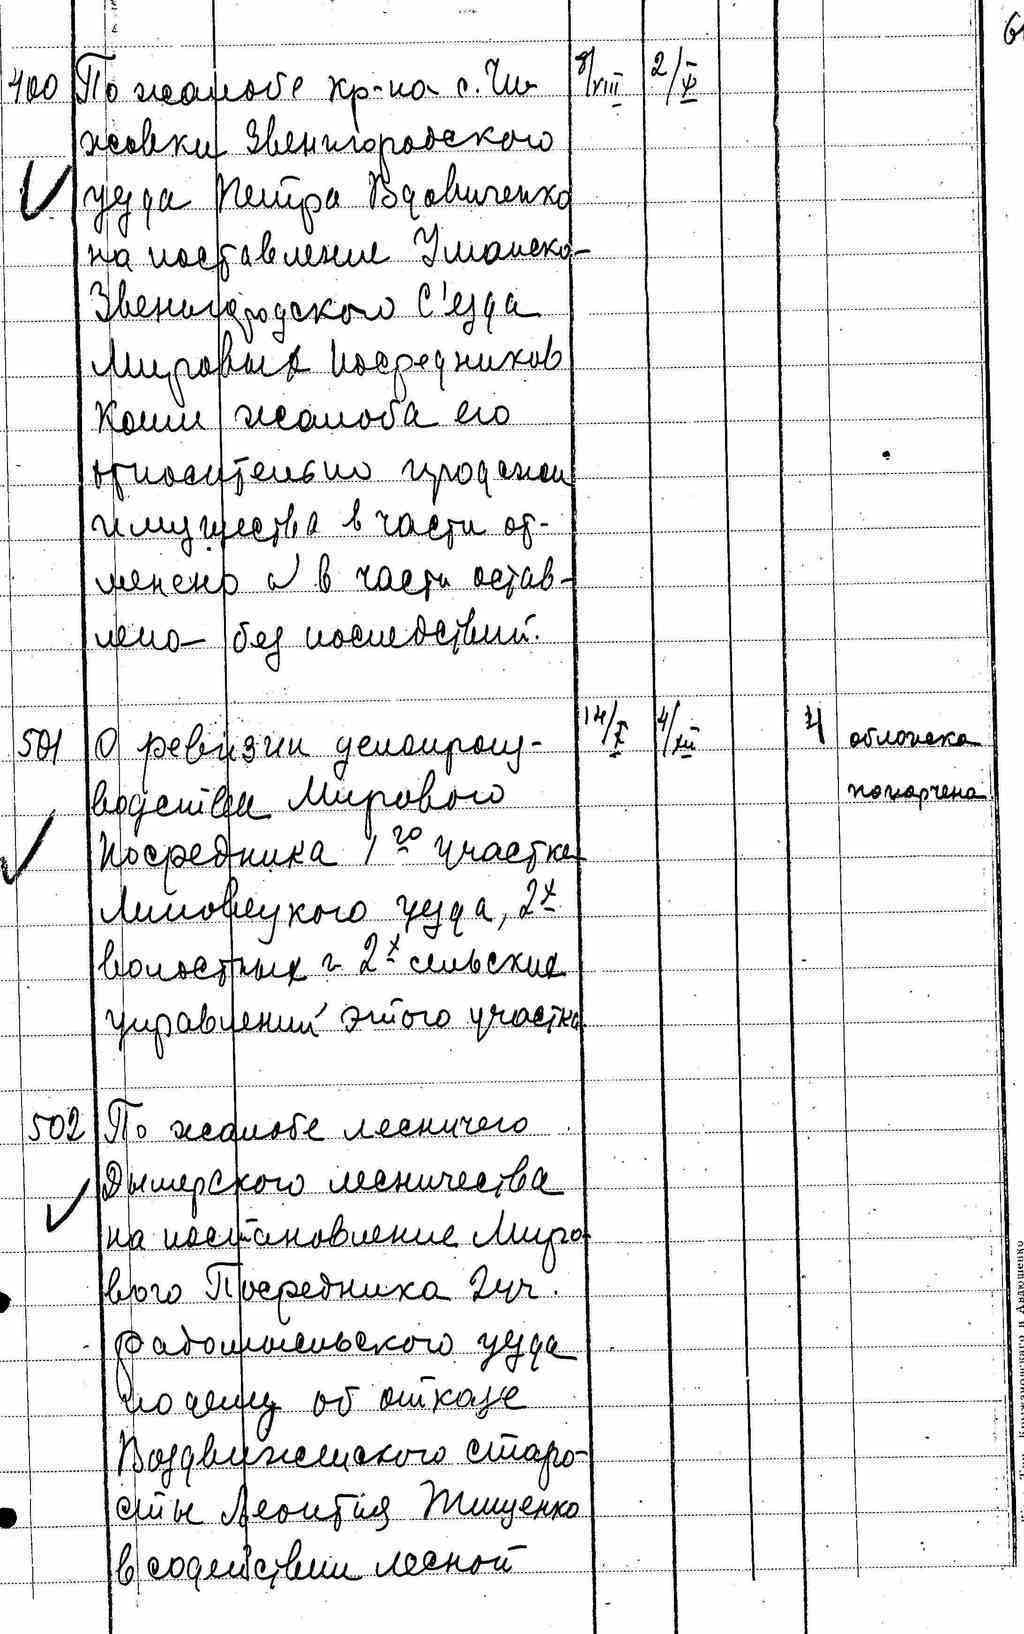 400 По жалобе кр-на с. Чи- 8/VIII 2/X
жовки Звенигородского
уезда Петра Вдовиченко
на поставление Уманско-
Звенигородского С'езда
Мировых Посредников
Коим жалоба его
относительно продажи
имущества в части от-
менено а в части остав-
лено - без последствий.
501 О ревизии делопроиз- 14/X 4/XII 4 обложка
водства Мирового испорчена
Посредника 1го участка
Липовецкого уезда, 2х
волостных и 2х сельских
управлений этого участка
502 По жалобе лесничего
Дымерского лесничества
на постановление Миро-
вого Посредника 2 уч.
Радомысльского уезда
по делу об отказе
Воздвиженского старо-
сты Леонтия Тищенко
в содействии лесной